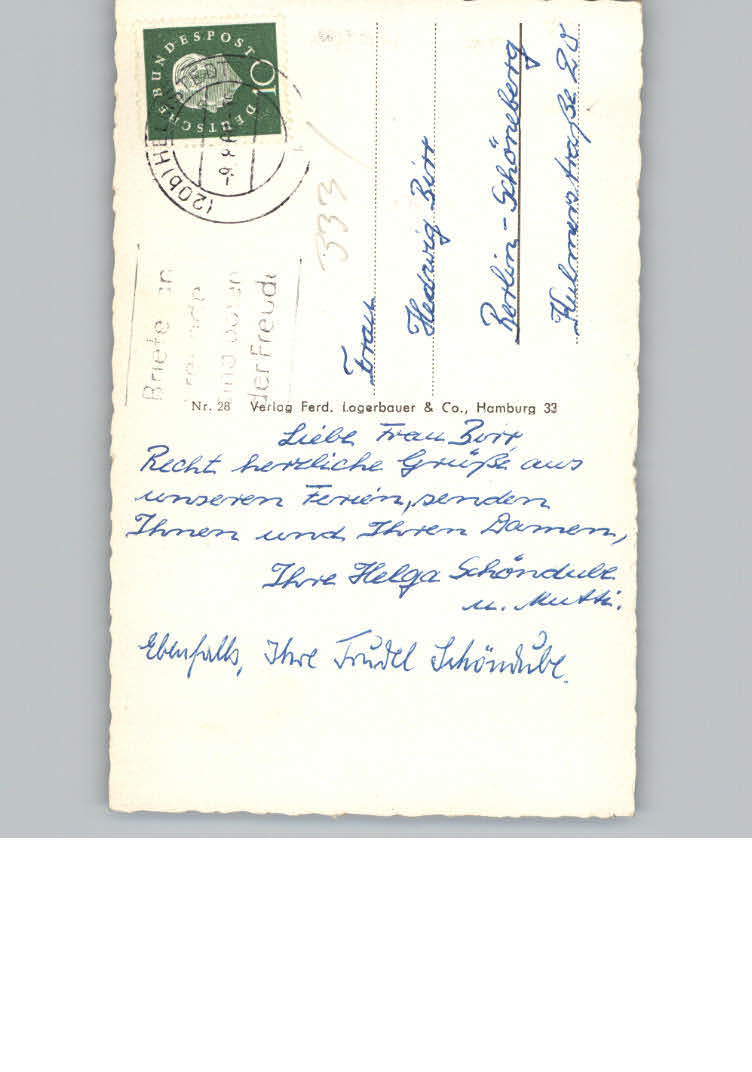 DEUTSCHE BUNDESPOST
10
(20b) HE
-9.8.60
Briefe an
der Freude
333
Frau
Hedwig Birr
Berlin-Schöneberg
Kulmerstraße 20
Nr. 28 Verlag Ferd. Lagerbauer & Co., Hamburg 33
Liebe Frau Birr
Recht herzliche Grüße aus
unseren Ferien, senden
Ihnen und Ihren Damen,
Ihre Helga Schöndube
u. Mutti.
Ebenfalls, Ihre Trudel Schöndube.